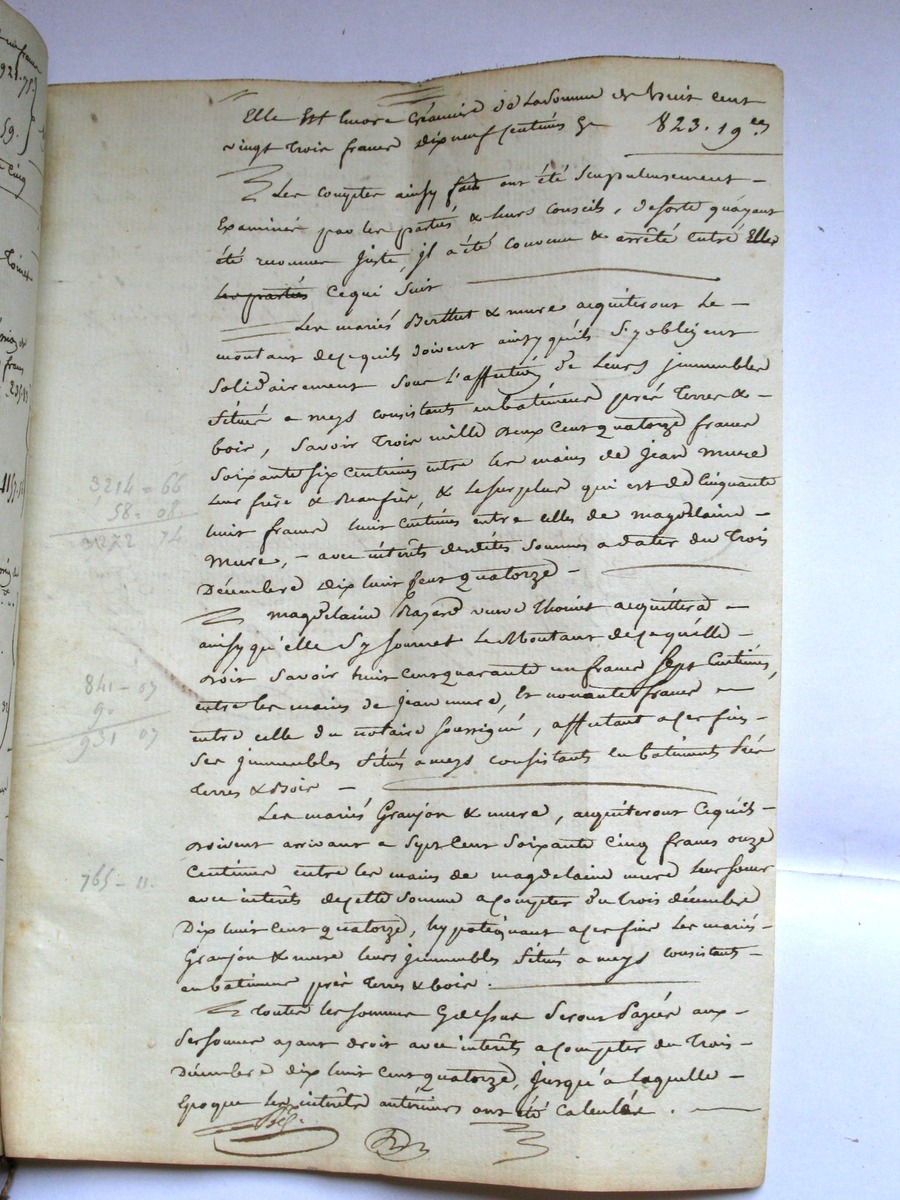 Elle est encore créancière de la somme de huit cent
vingt trois francs dix neuf centimes cy 823. 19 ces
Les comptes ainsy faits ont été scrupuleusement
Examinés par les parties & leurs conseils, desorte qu'ayant
été reconnus justes, il a été convenu & arrêté entre Elles
les parties ce qui suit
Les mariés Berthet & mure acquiteront Le
montant de ce quils doivent ainsy quils s'y obligent
solidairement sous l'affectation de leurs immeubles
situés a meys consistants en batiments prés Terres &
bois, savoir Trois mille deux cent quatorze francs
soixante six centimes entre les mains de jean mure
leur frère & beaufrère, & le surplus qui est de cinquante
huit francs huit centimes entre celles de magdelaine
mure, avec intérêts desdites sommes a dater du Trois
Décembre dix huit cent quatorze
magdelaine veuve Thoinet acquittera
ainsy qu'elle s'y soumet Le Montant de ce qu'elle
doit savoir huit cent quarante un francs sept centimes,
entre les mains de jean mure, Et nonante francs
entre celle du notaire soussigné, affectant a ces fins
ses immeubles situés a meys consistants en batiments prés
Terres & Bois
Les mariés Granjon & mure, acquiteront ce quils
doivent arrivant a sept cent soixante cinq francs onze
centimes entre les mains de magdelaine mure leur sœur
avec intérêts de cette somme a compter du trois décembre
Dix huit cent quatorze, hypotéquant a ces fins les mariés
Granjon & mure leurs immeubles situés a meys consistants
en batiments prés Terres & bois.
Toutes les sommes cy dessus seront payées aux
personnes ayant droit avec intérêts a compter du Trois
Décembre dix huit cent quatorze, jusqu'a laquelle
époque les intérêts antérieurs ont été calculés.
3214 = 66
58 = 08
3272 74
841 - 07
90
931 07
765 - 11.